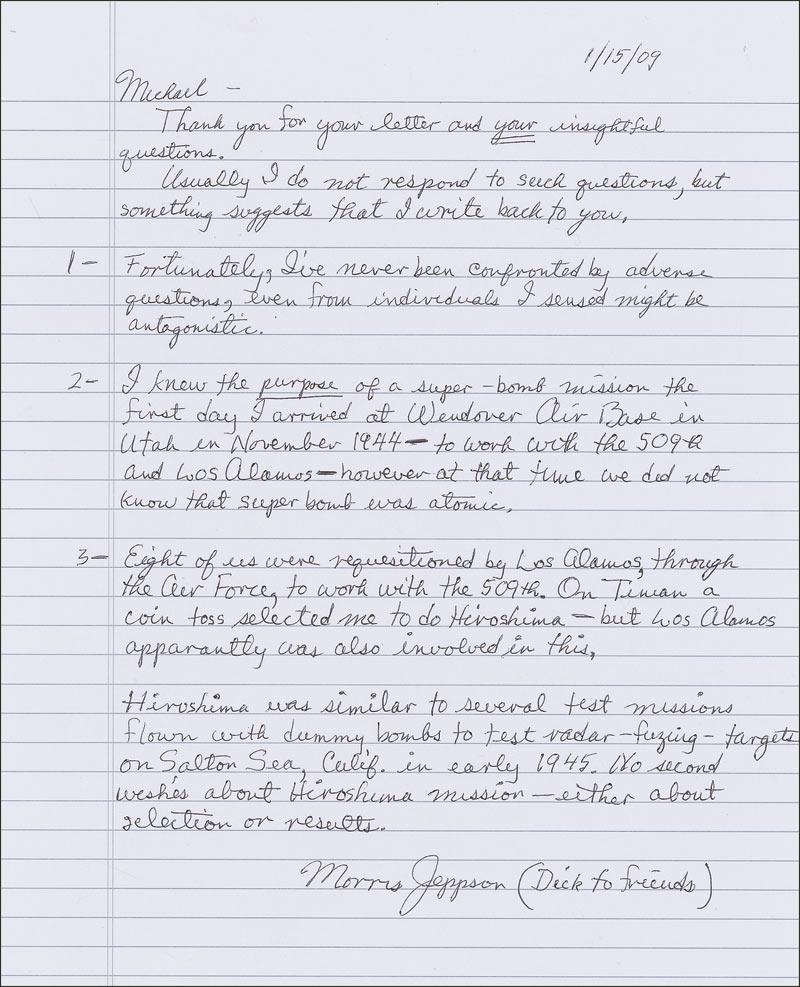 1/15/09
Michael –
Thank you for your letter and your insightful
questions.
Usually I do not respond to such questions, but
something suggests that I write back to you.
1– Fortunately, I've never been confronted by adverse
questions, even from individuals I sensed might be
antagonistic.
2– I knew the purpose of a super-bomb mission the
first day I arrived at Wendover Air Base in
Utah in November 1944 – to work with the 509th
and Los Alamos – however at that time we did not
know that super bomb was atomic.
3– Eight of us were requisitioned by Los Alamos, through
the Air Force, to work with the 509th. On Tinian a
coin toss selected me to do Hiroshima – but Los Alamos
apparantly was also involved in this.
Hiroshima was similar to several test missions
flown with dummy bombs to test radar-fuzing – targets
on Salton Sea, Calif. in early 1945. No second
weshes about Hiroshima mission – either about
selection or results.
Morris Jeppson (Dick to friends)